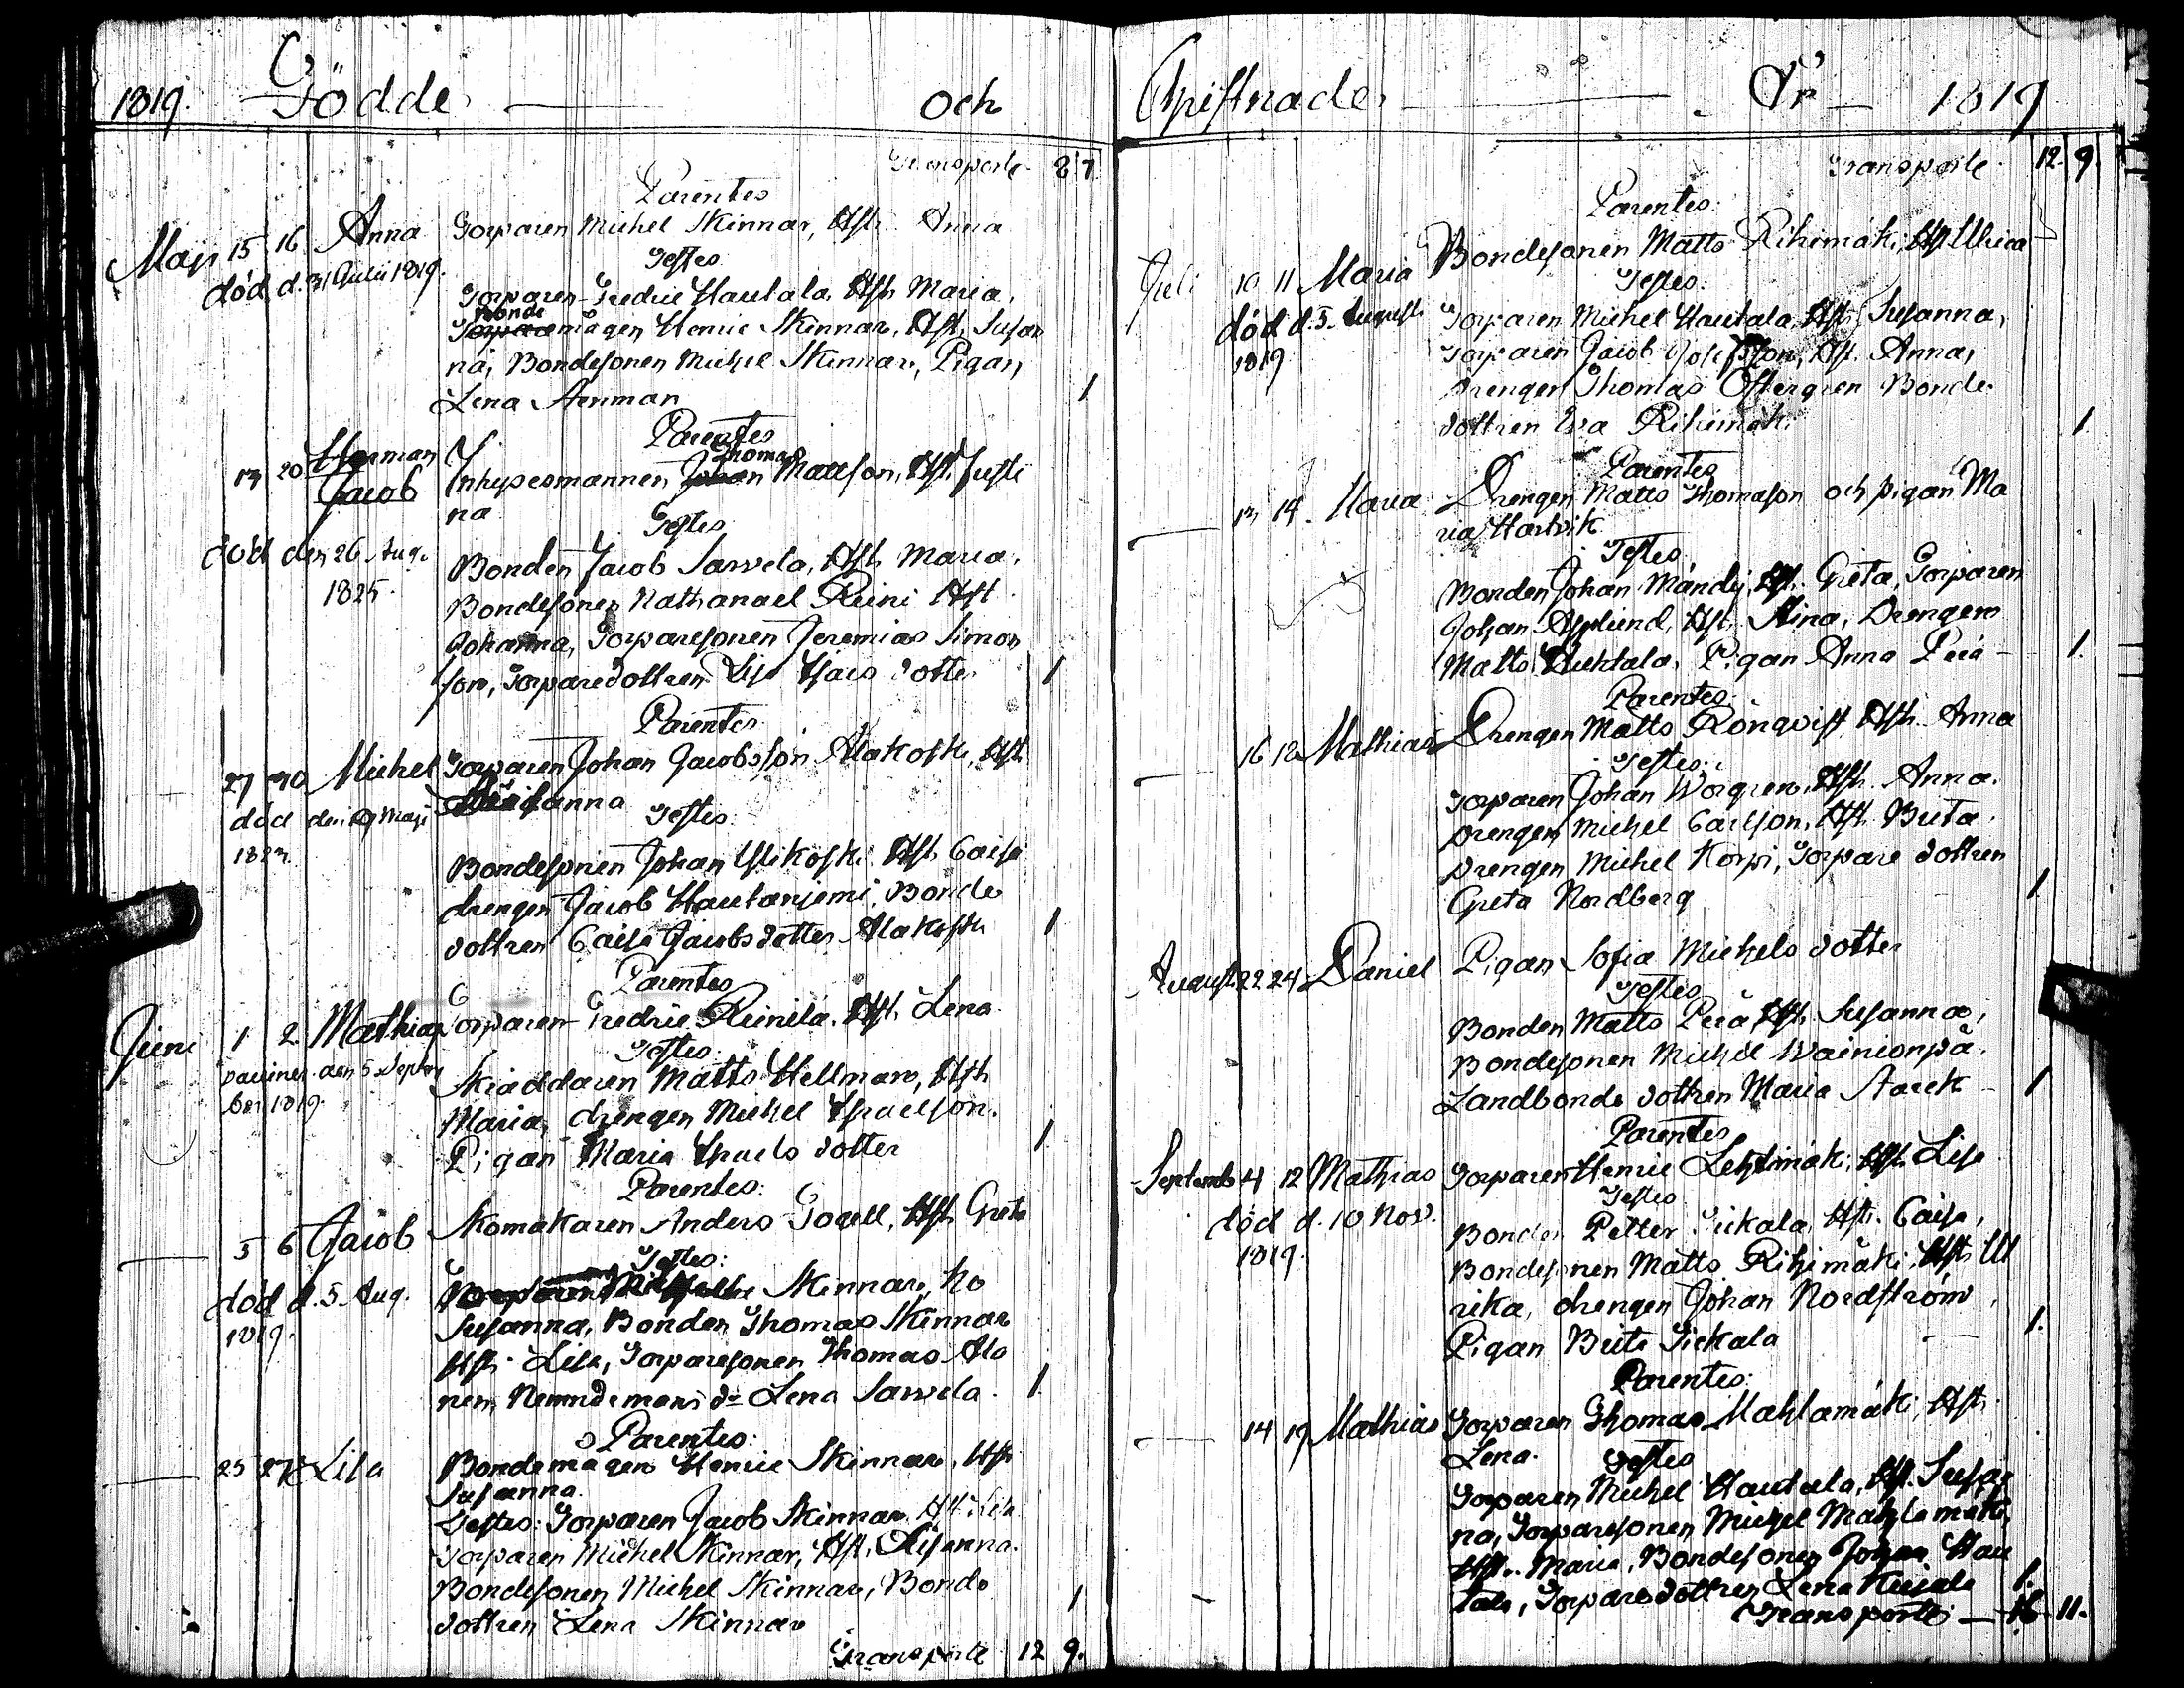 1819. Födde och
Transporte 8 7
Parentes
Maji 15 16 Anna Torparen Michel Skinnar, Hst. Anna
död d. 31 Julii 1819.
Testes
Torparen Fredric Hautala, Hst. Maria,
Bonde
mågen Henric Skinnar, Hst. Susan
na, Bondesonen Michel Skinnar, Pigan
Lena 1
Parentes
Thomas
20 Herman Jacob Inhysesmannen Johan Mattsson, Hst. Justi
na
Testes
död den 26 Aug.
1825.
Bonden Jacob Sarvela, Hst. Maria.
Bondesonen Nathanael Reini Hst
Johanna, Torparesonen Jeremias Simon
son, Torparedottren Lisa dotter 1
Parentes
27 30 Michel Torparen Johan Jacobsson Alakoski, Hst
Susanna
död den 19 Maji
Testes
Bondesonen Johan Ylikoski Hst. Caisa
drengen Jacob Hautaniemi, Bonde
dottren Caisa Jacobsdotter Alakoski 1
Parentes
Juni 1 2 Mathias Torparen Fredric Reinilä. Hst. Lena
Testes
den 5 Septem
ber 1819.
Skräddaren Matts Hellman, Hst
Maria, drengen Michel Israelson.
Pigan Maria Israels dotter 1
Parentes:
5 6 Jacob Skomakaren Anders Hst. Greta
Testes:
död d. 5 Aug.
1819.
Skinnar, ho
Susanna, Bonden Thomas Skinnar
Hst. Lisa, Torparesonen Thomas Alo
nen, Nemndemans dr Lena Sarvela. 1
Parentes:
25 27 Lisa Bondemågen Henric Skinnar, Hst
Susanna.
Testes: Torparen Jacob Skinnar Hst. Lisa
Torparen Michel Skinnar, Hst. Susanna.
Bondesonen Michel Skinnar, Bonde 1
dottren Lena Skinnar
Transporte 12 9.
Christnade År 1819
Transporte 12. 9.
Parentes:
Juli 10 11 Maria Bondesonen Matts Rihimäki, Hst Ulrica
Testes:
död d. 5. Augusti
1819
Torparen Michel Hautala, Hst. Susanna,
Torparen Jacob Josefsson, Hst. Anna,
Drengen Thomas Östergren Bonde
dottren Eva Rihimäki 1.
Parentes
13 14. Maria Drengen Matts Thomason och pigan Ma
ria Hartvik
Testes
Bonden Johan Mändy, Hst. Greta, Torparen
Johan Asplund, Hst. Stina, Drengen
Matts Huhtala, Pigan Anna Perä 1.
Parentes:
16 18 Mathias Drengen Matts Rönqvist Hst. Anna
Testes:
Torparen Johan Worgren, Hst. Anna.
Drengen Michel Carlson, Hst. Brita.
Drengen Michel Korpi, Torpare dottren
Greta Nordberg 1
Augusti 22 24 Daniel Pigan Sofia Michels dotter
Testes
Bonden Matts Perä, Hst. Susanna,
Bondesonen Michel Wainionpä.
Landbonde dottren Maria 1
Parentes
Septemb 4 12 Mathias Torparen Henric Lehtimäki, Hst. Lisa
Testes
död d. 10 Nov.
1819.
Bonden Petter Hst. Caisa,
Bondesonen Matts Rihimäki, Hst. Ul
rika, drengen Johan Nordström,
Pigan Brita 1.
Parentes:
14 19 Mathias Torparen Thomas Mahlamäki, Hst.
Lena. Testes
Torparen Michel Hautala, Hst. Susan
na, Torparesonen Michel Mahlamäki,
Hst. Maria, Bondesonen Johan Hau
tala, Torparedottren Lena 1.
Transporte — 16 11.